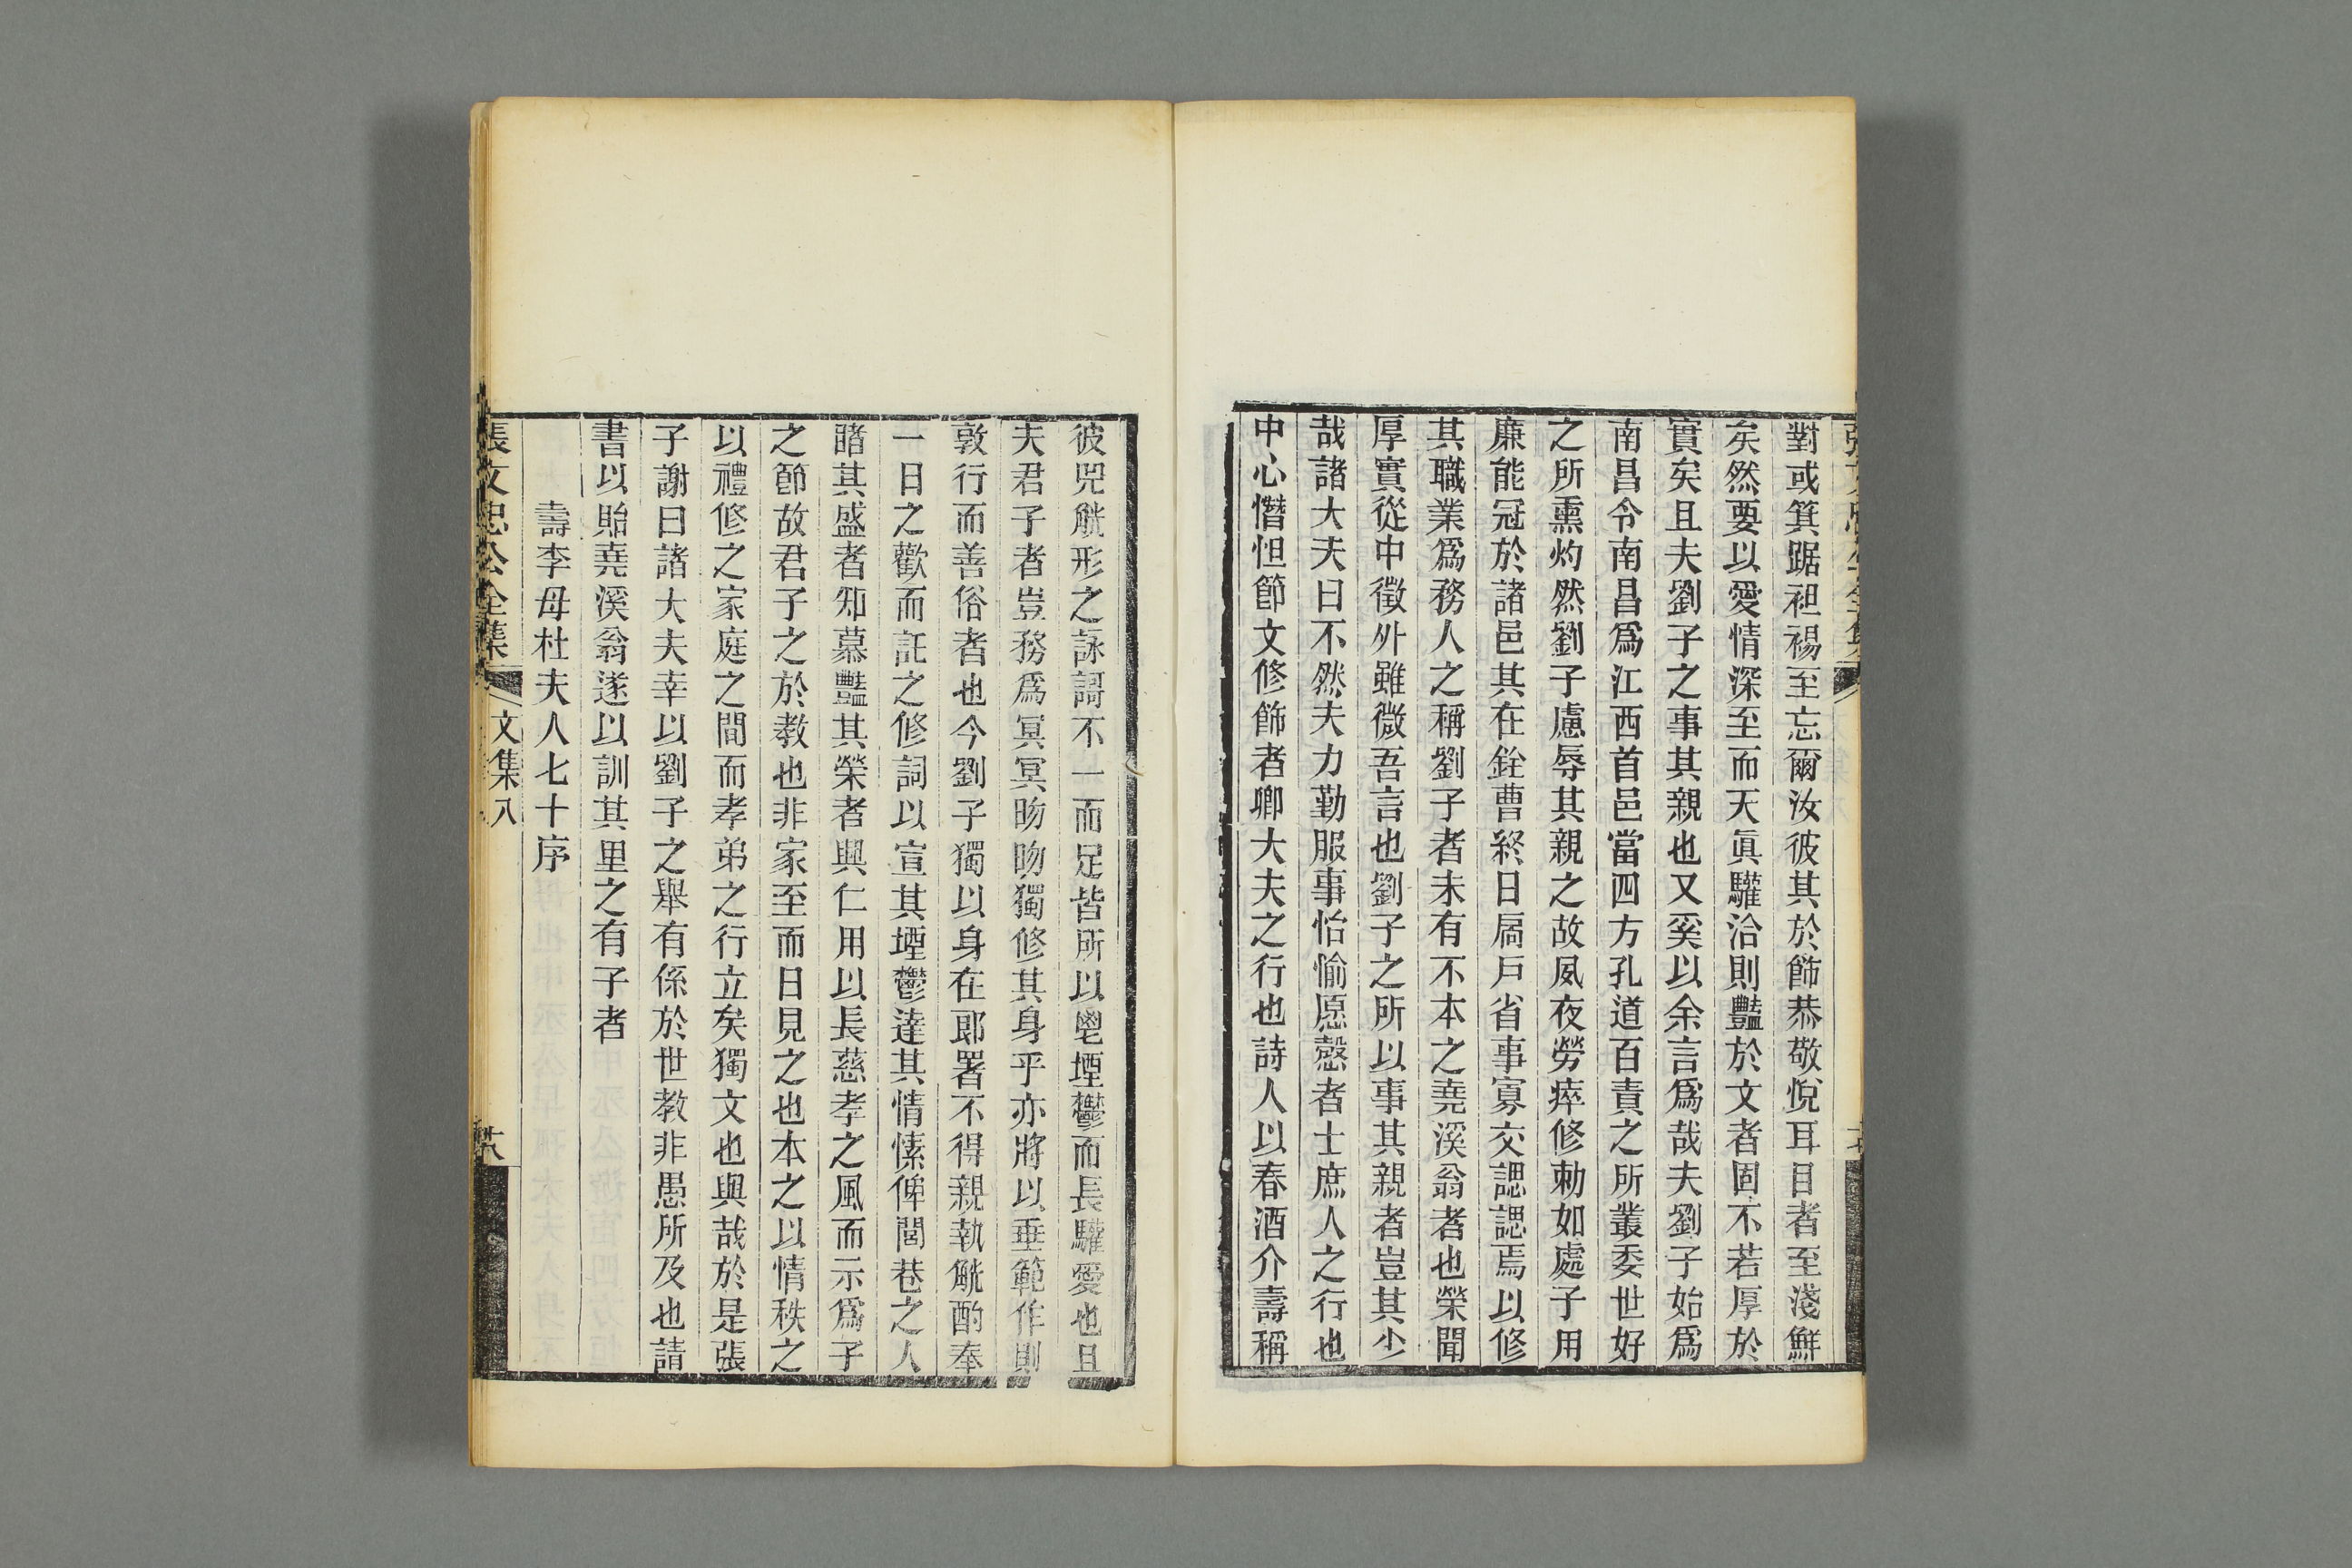 對或箕踞袒裼至忘爾汝彼其於飾恭敬悅耳目者至淺鮮
矣然要以愛情深至而天眞驩洽則豔於文者固不若厚於
實矣且夫劉子之事其親也又奚以余言爲哉夫劉子始爲
南昌令南昌爲江西首邑當四方孔道百責之所叢委世好
之所熏灼然劉子慮辱其親之故夙夜勞瘁修勑如處子用
廉能冠於諸邑其在銓曹終日扃戸省事寡交諰諰焉以修
其職業爲務人之稱劉子者未有不本之堯溪翁者也榮聞
厚實從中徵外雖微吾言也劉子之所以事其親者豈其少
哉諸大夫曰不然夫力勤服事怡愉愿慤者士庶人之行也
中心憯怛節文修飾者卿大夫之行也詩人以春酒介壽稱
彼兕觥形之詠謌不一而足皆所以鬯堙鬱而長驩愛也且
夫君子者豈務爲冥冥昒昒獨修其身乎亦將以垂範作則
敦行而善俗者也今劉子獨以身在郎署不得親執觥酌奉
一日之歡而託之修詞以宣其堙鬱達其情愫俾閭巷之人
睹其盛者知慕豔其榮者興仁用以長慈孝之風而示爲子
之節故君子之於教也非家至而日見之也本之以情秩之
以禮修之家庭之間而孝弟之行立矣獨文也與哉於是張
子謝曰諸大夫幸以劉子之舉有係於世教非愚所及也請
書以貽堯溪翁遂以訓其里之有子者
壽李母杜夫人七十序
張文忠公全集 文集八 十八